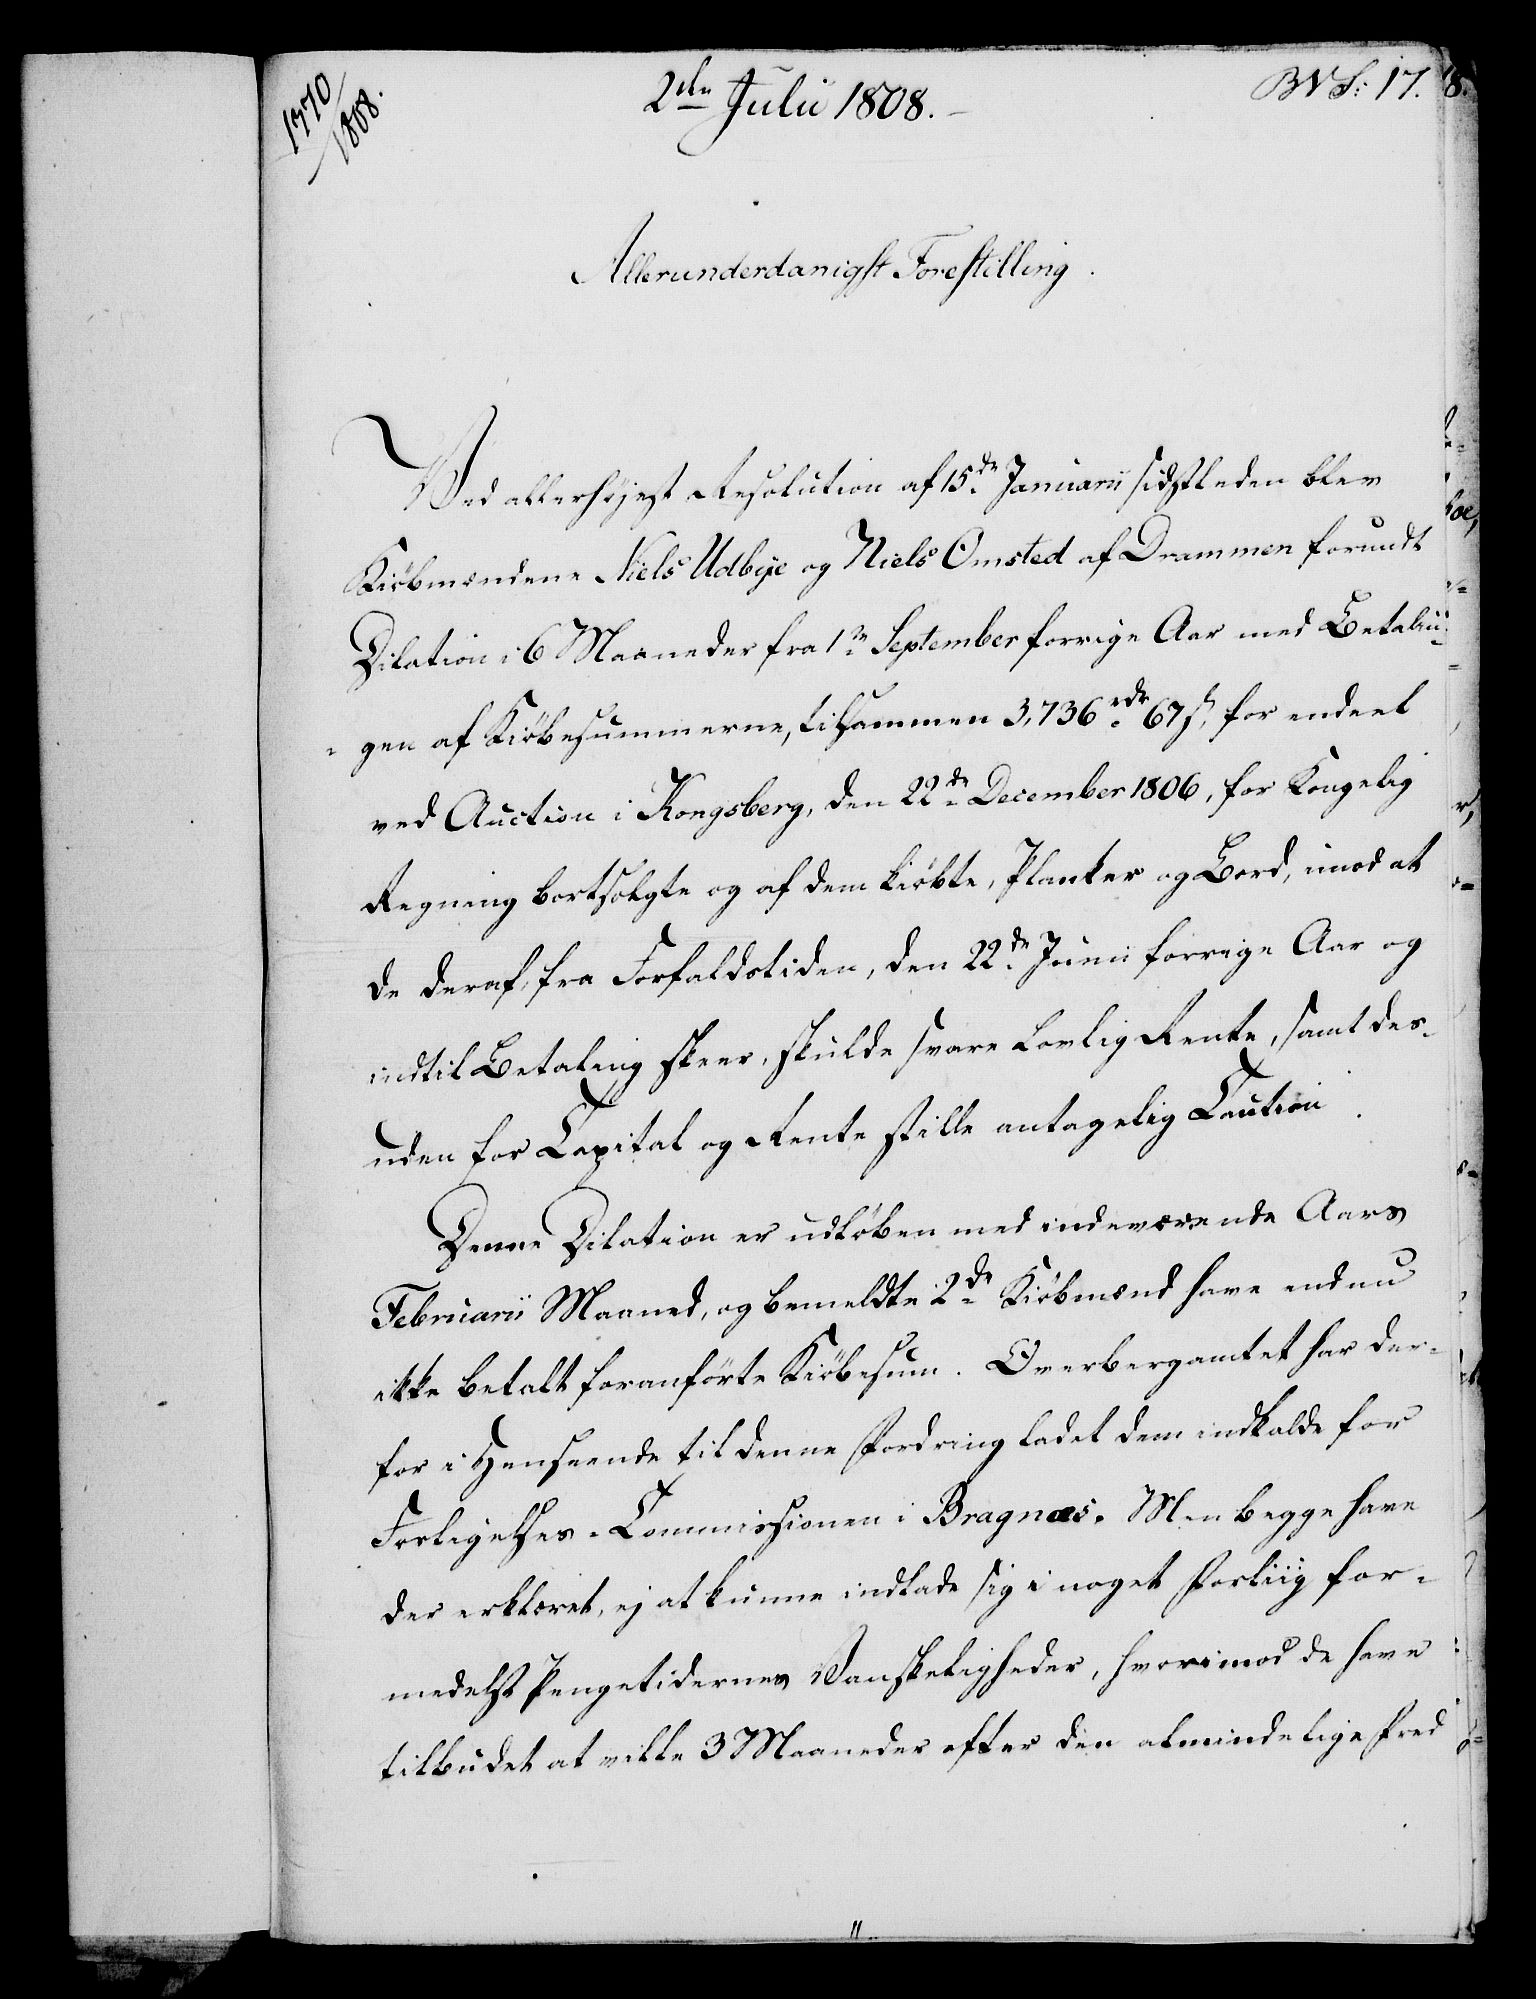 1770/1808.
2den Julii 1808.
BVS: 17.
Allerunderdanigst Forestilling.
Ved allerhöjest Resolution af 15de Januarii sidstleden blev
Kiöbmændene Niels Udbye og Niels Omsted af Drammen forundt
Dilation i 6 Maaneder fra 1ste September forrige Aar med Betalin-
gen af Kiöbesummerne, tilsammen 3,736 rdr 67 s, for endeel
ved Auction i Kongsberg, den 22de December 1806, for Kongelig
Regning bortsolgte og af dem kiöbte, Planker og Bord, imod at
de deraf, fra Forfaldstiden, den 22de Junii forrige Aar og
indtil Betaling skeer, skulde svare lovlig Rente, samt des-
uden for Capital og Rente stille antagelig Caution.
Denne Dilation er udlöben med indeværende Aars
Februarii Maaned, og bemeldte 2de Kiöbmænd have endnu
ikke betalt foranförte Kiöbesum. Overbergamtet har der-
for i Henseende til denne Fordring ladet dem indkalde for
Forligelses-Commissionen i Bragnæs. Men begge have
der erklæret, ej at kunne indlade sig i noget Forliig for-
medelst Pengetidernes Vanskeligheder, hvorimod de have
tilbudet at ville 3 Maaneder efter den almindelige Fred